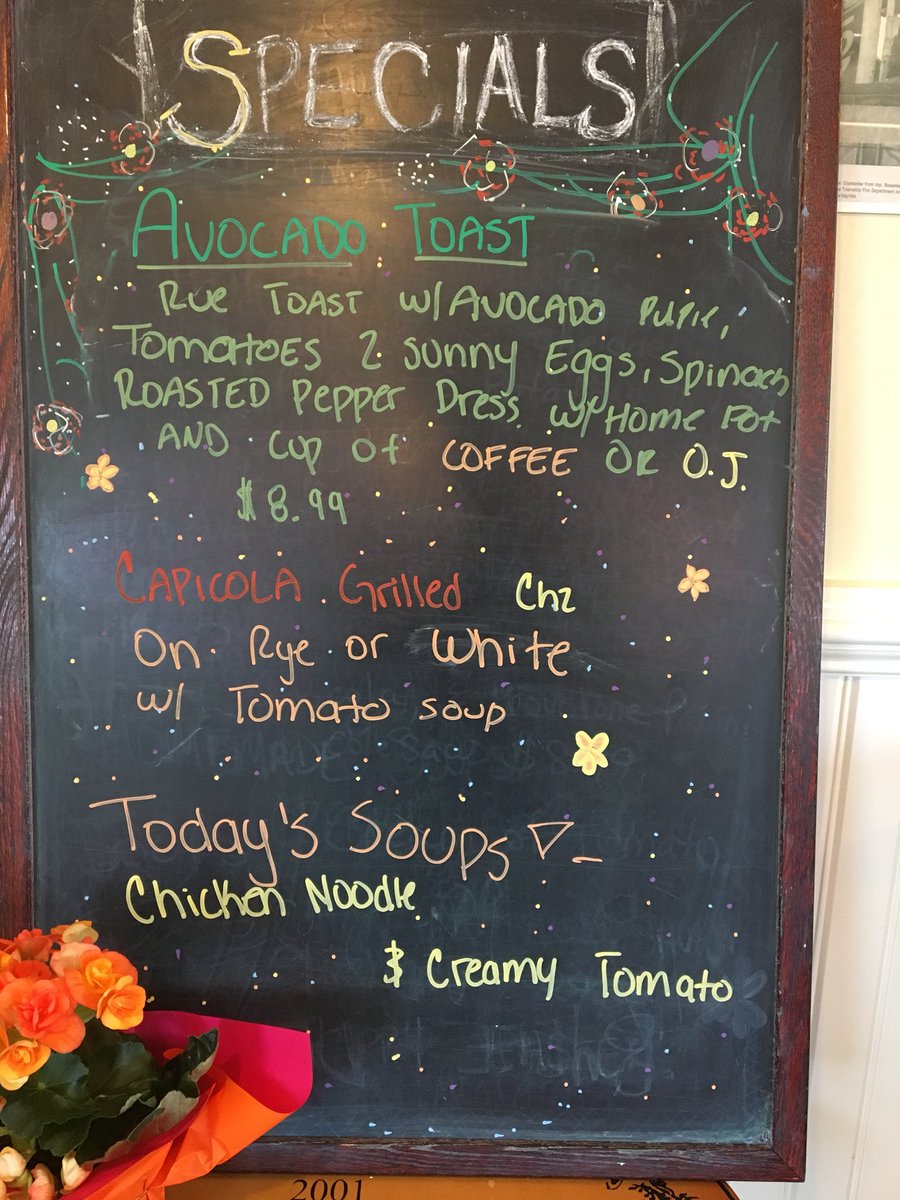 SPECIALS
AVOCADO TOAST
Rye TOAST w/AVOCADO
Tomatoes 2 sunny Eggs, Spinach
ROASTED Pepper Dress. w/ Home Pot
AND cup of COFFEE OR O.J.
$8.99
CAPICOLA Grilled Chz
On Rye or White
w/ Tomato soup
Today's Soups
Chicken Noodle
& Creamy Tomato
2001